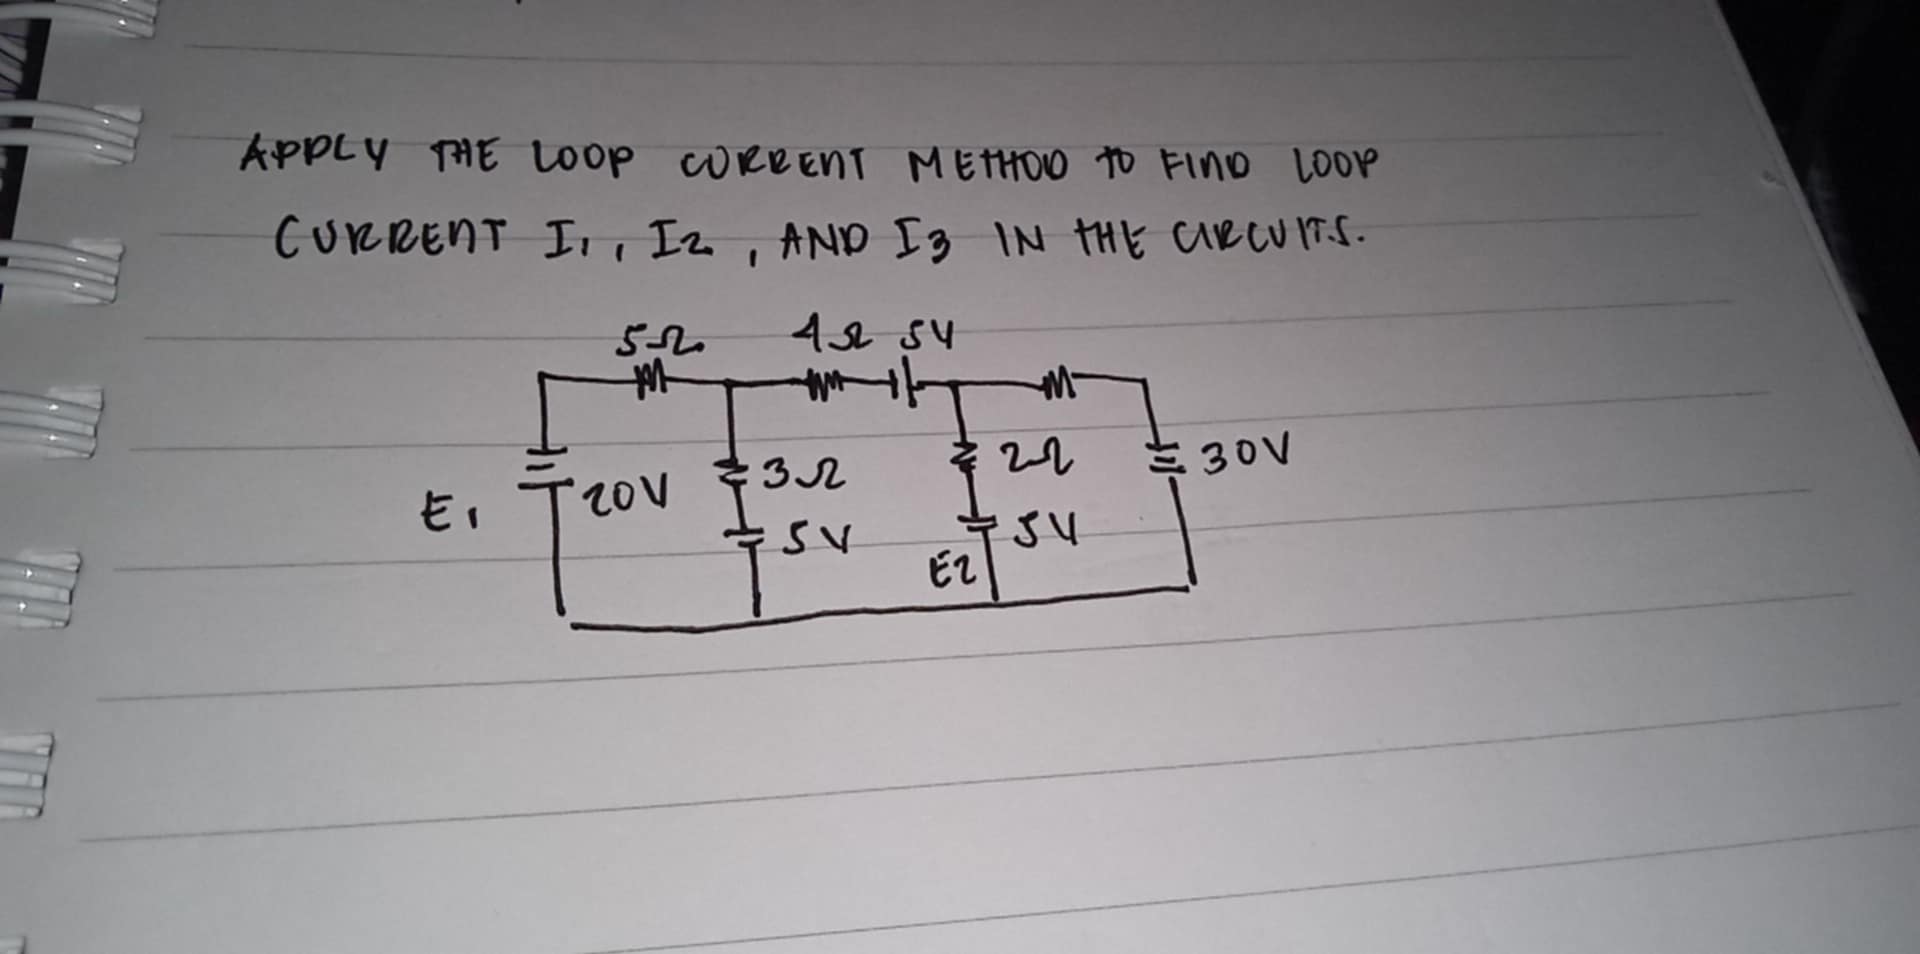 APPLY THE LOOP CURRENT METHOD TO FIND LOOP
CURRENT I1, I2, AND I3 IN THE CIRCUITS.
5Ω 4Ω 5V
E1 20V 3Ω 2Ω 30V
5V 5V
E2